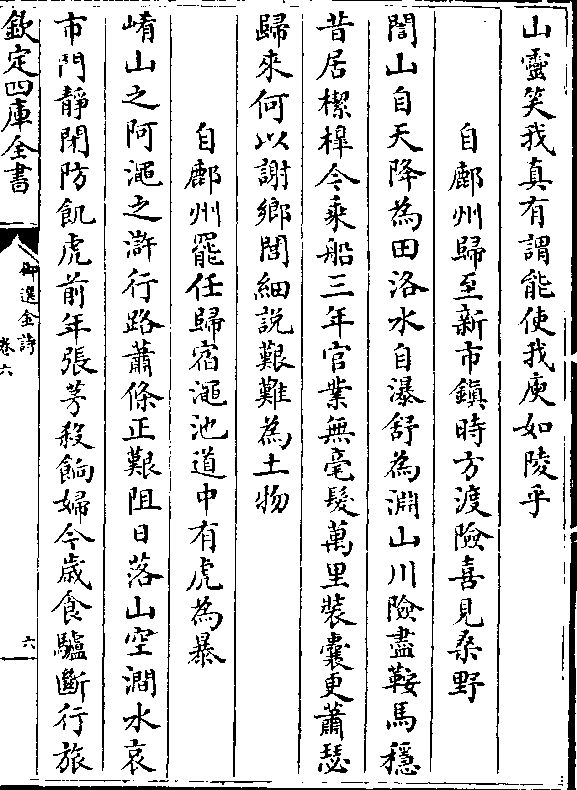 山靈笑我真有謂能使我庾如陵乎
自鄜州歸至新市鎮時方渡險喜見桑野
誾山自天降為田洛水自瀑舒為淵山川險盡鞍馬穩
昔居樏橰今乘船三年官業無毫髮萬里裝囊更蕭瑟
歸來何以謝鄉閭細說艱難為土物
自鄜州罷任歸宿澠池道中有虎為暴
崤山之阿澠之滸行路蕭條正艱阻日落山空澗水哀
市門靜閉防飢虎前年張芳殺餉婦今歲食驢斷行旅
欽定四庫全書
御選金詩
卷六
六